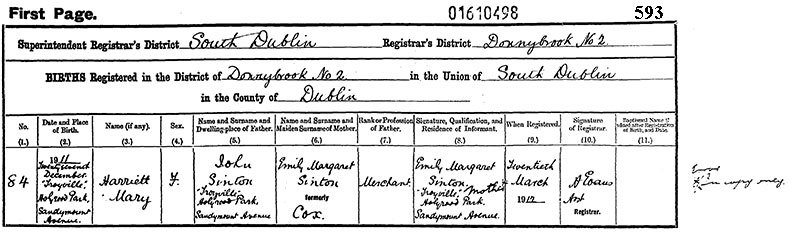 First Page. 01610498 593
Superintendent Registrar's District South Dublin Registrar's District Donnybrook No 2
BIRTHS Registered in the District of Donnybrook No 2 in the Union of South Dublin
in the County of Dublin
No. Date and Place of Birth. Name (if any). Sex. Name and Surname and Dwelling-place of Father. Name and Surname and Maiden Surname of Mother. Rank or Profession of Father. Signature, Qualification, and Residence of Informant. When Registered. Signature of Registrar. Baptismal Name if added after Registration of Birth, and Date.
(1.) (2.) (3.) (4.) (5.) (6.) (7.) (8.) (9.) (10.) (11.)
84
1911
December
"Troyville",
Holyrood Park,
Sandymount
Avenue.
Harriett
Mary
F.
John
Sinton
"Troyville",
Holyrood Park.
Sandymount Avenue
Emily Margaret
Sinton
formerly
Cox.
Merchant.
Emily Margaret
Sinton
Mother
"Troyville,"
Holyrood Park,
Sandymount Avenue.
Twentieth
March
1912
Evans
Registrar.
copy only.